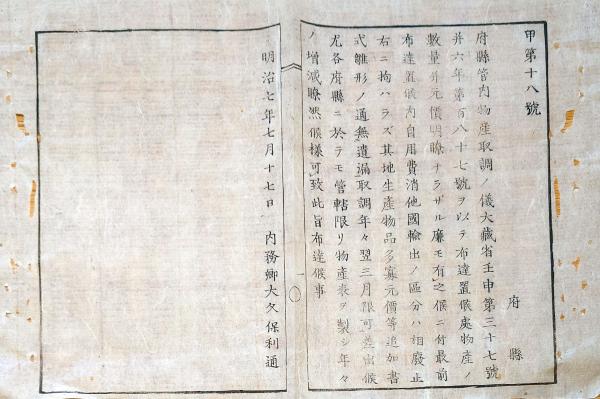 甲第十八號
府縣
府縣管内物産取調ノ儀大藏省壬申第三十七號
并六年第百八十七號ヲ以テ布達置候處物産ノ
數量并元價明瞭ナラザル廉モ有之候ニ付最前
布達置候内自用費消他國輸出ノ區分ハ相廢止
右ニ拘ハラズ其地生産物品多寡元價等追加書
式雛形ノ通無遺漏取調年々翌三月限可差出候
尤各府縣ニ於テモ管轄限リ物産表ヲ製シ年々
ノ増減瞭然候樣可致此旨布達候事
一
明治七年七月十七日 内務卿大久保利通